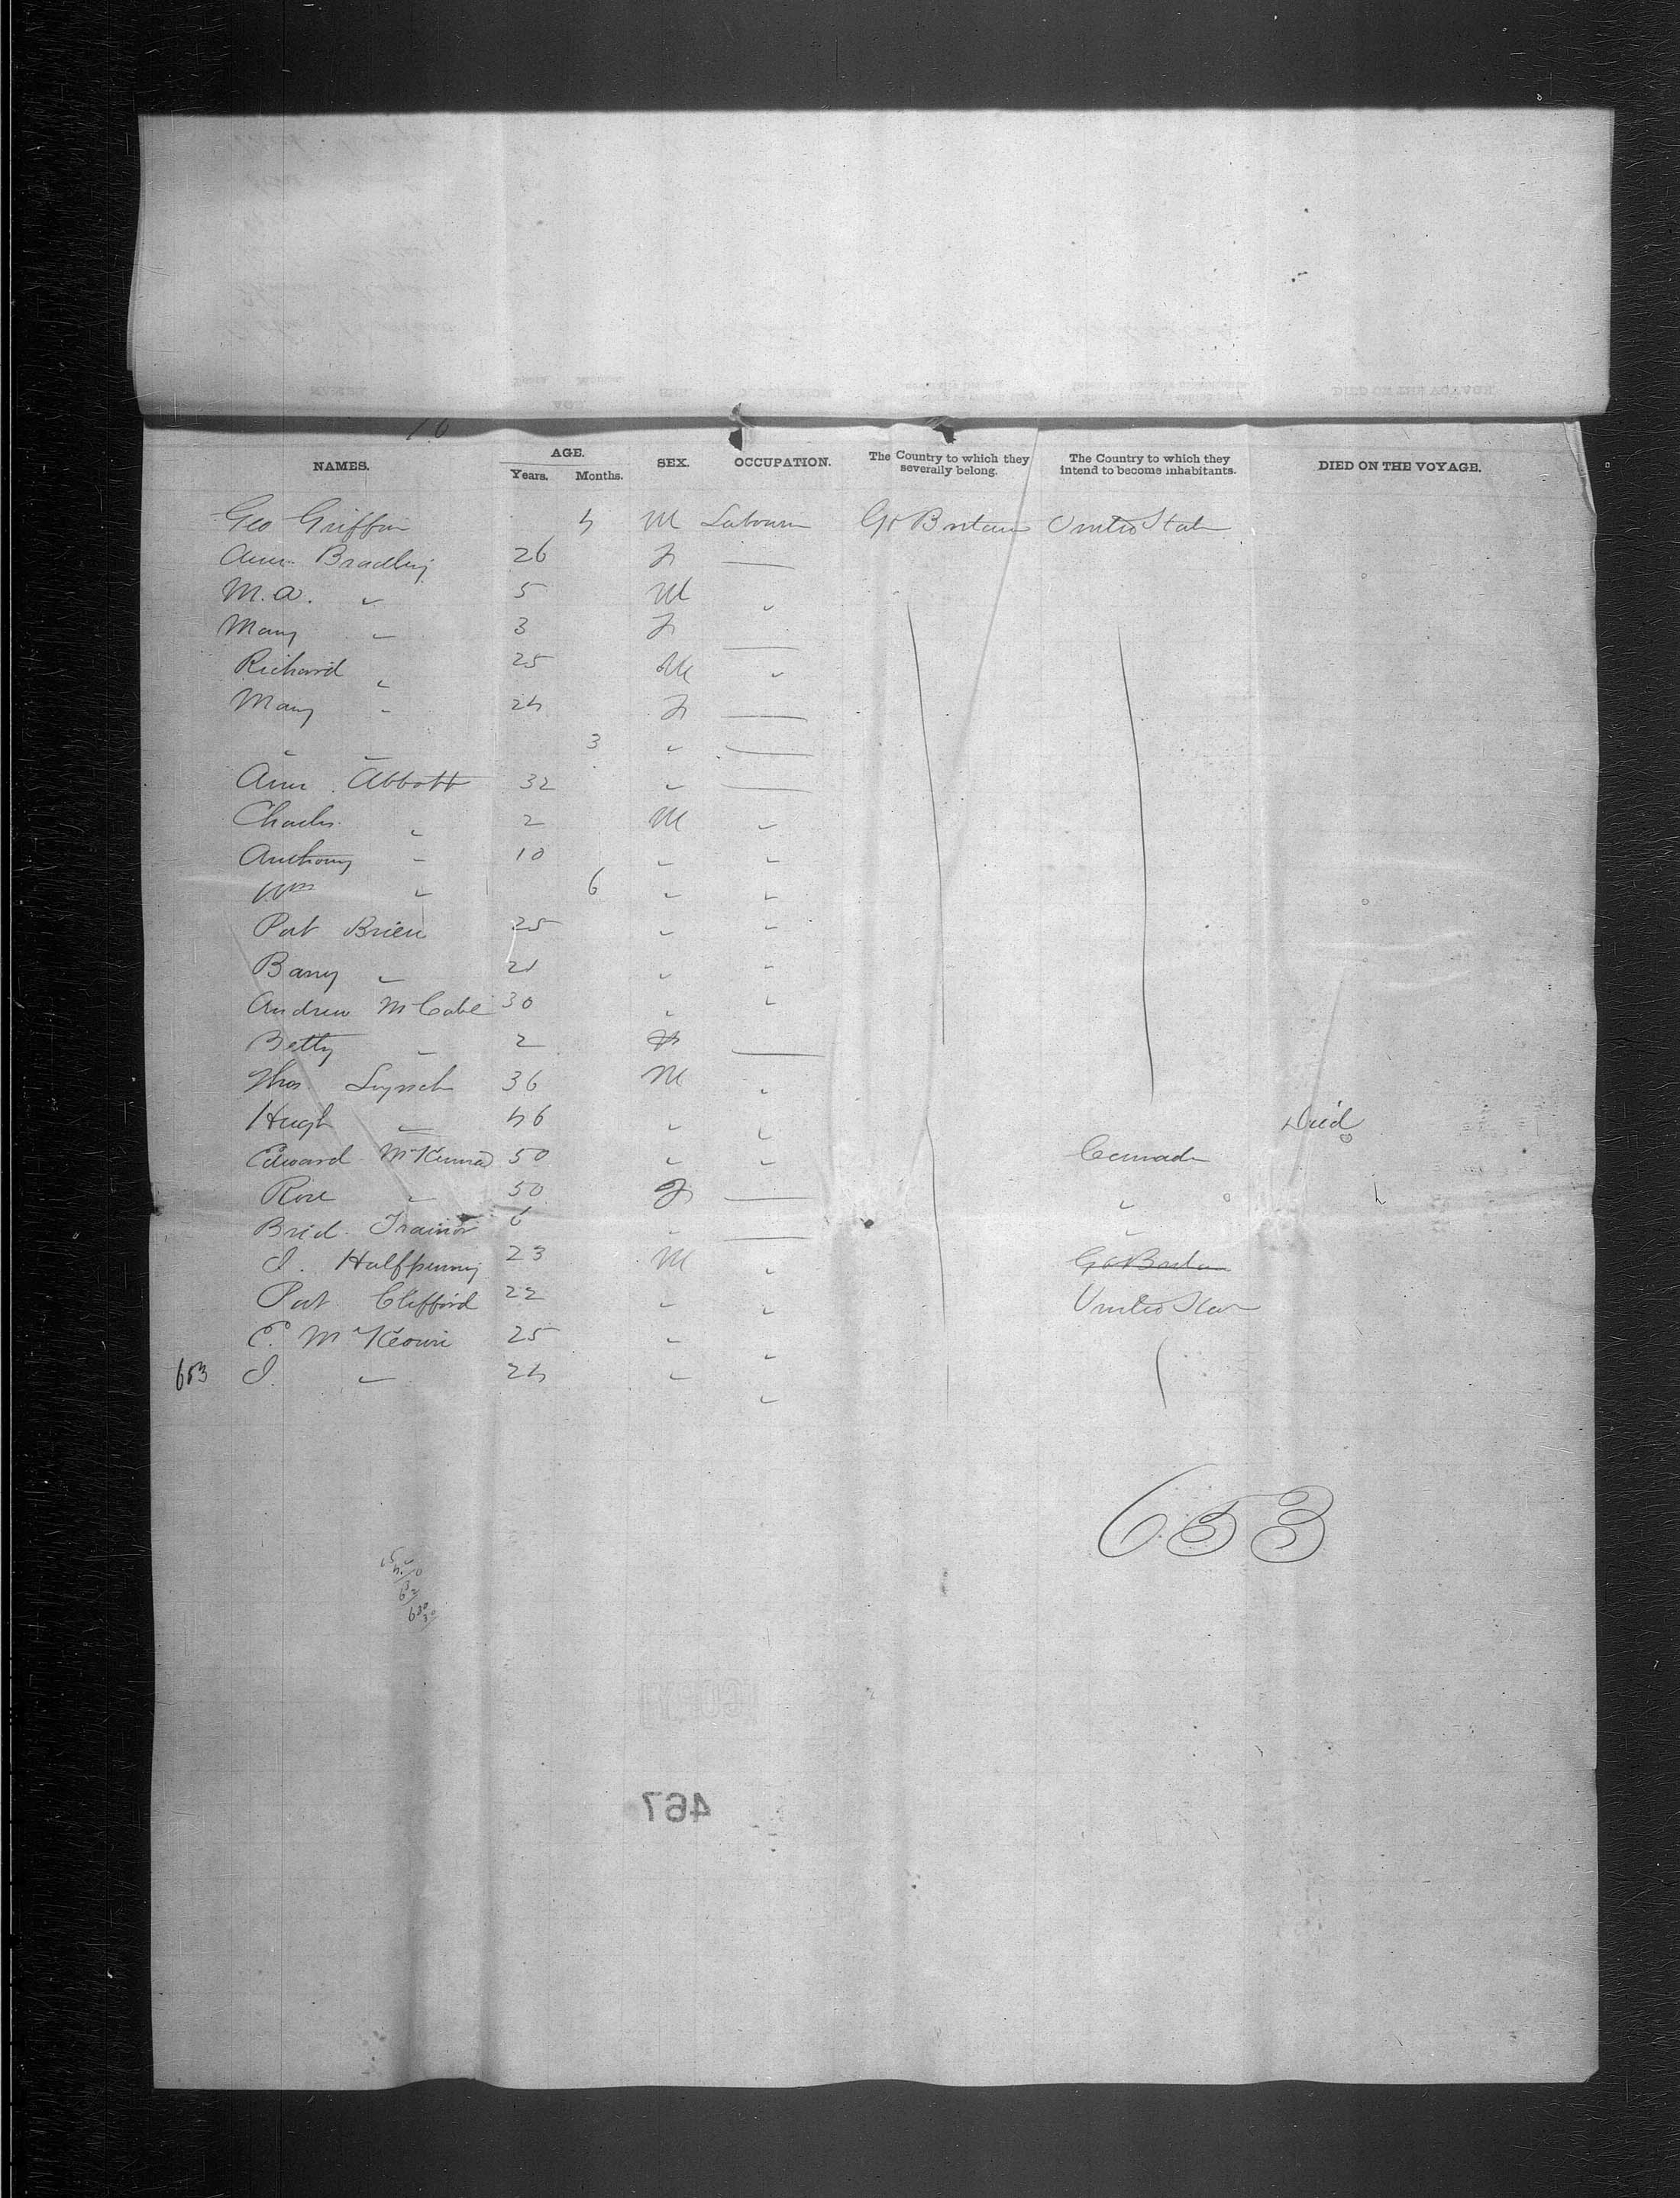 NAMES. AGE. Years. Months. SEX. OCCUPATION. The Country to which they severally belong. The Country to which they intend to become inhabitants. DIED ON THE VOYAGE.
Geo Griffin 4 M Labourer Gt Britain United States
Ann Bradley 26 F —
M.A. " 5 M "
Mary " 3 F —
Richard " 25 M "
Mary " 24 F —
" " 3 " —
Ann Abbott 32 " —
Charles " 2 M "
Anthony " 10 " "
Wm " 6 " "
Pat Brien 25 " "
Barry " 21 " "
Andrew McCabe 30 " "
Betty " 2 F —
Thos. Lynch 36 M "
Hugh " 46 " " Died
Edward McKenna 50 " " Canada
Rose " 50 F — "
Brid. Trainor 6 " — "
J. Halfpenny 23 M " Gt Britain
Pat Clifford 22 " " United States
E. McKeown 25 " "
653 J. " 24 " "
653
467